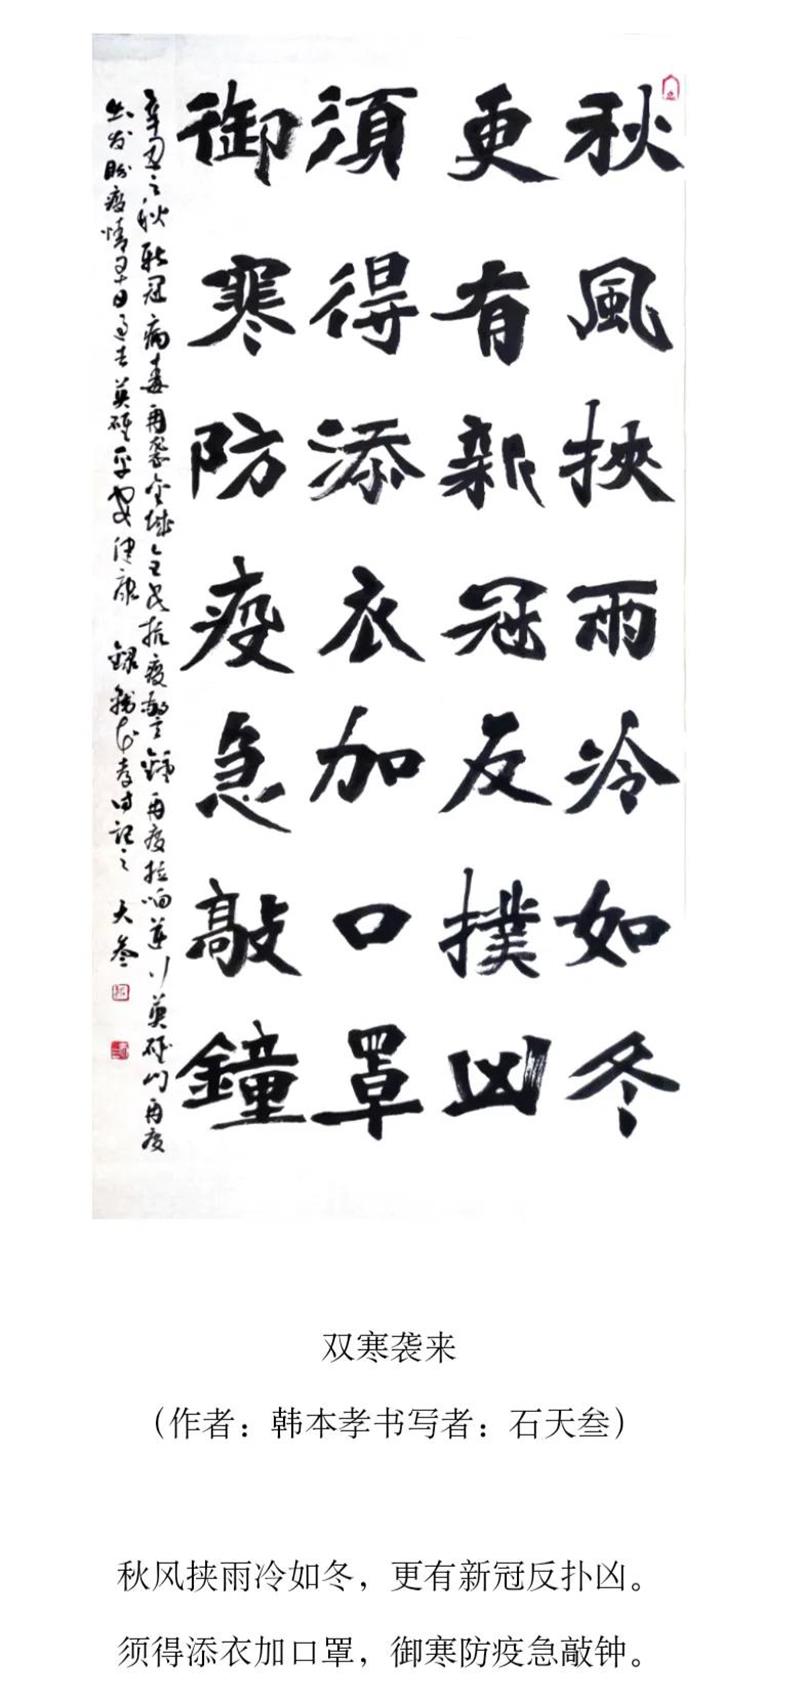 秋風挾雨冷如冬
更有新冠反撲凶
須得添衣加口罩
御寒防疫急敲鐘
辛丑之秋新冠病毒再袭城全民抗疫警鐘再度拉响逆行英雄们再度
出发盼疫情早日过去英雄平安健康 録韩本孝诗記之 天叁
双寒袭来
（作者：韩本孝书写者：石天叁）
秋风挟雨冷如冬，更有新冠反扑凶。
须得添衣加口罩，御寒防疫急敲钟。